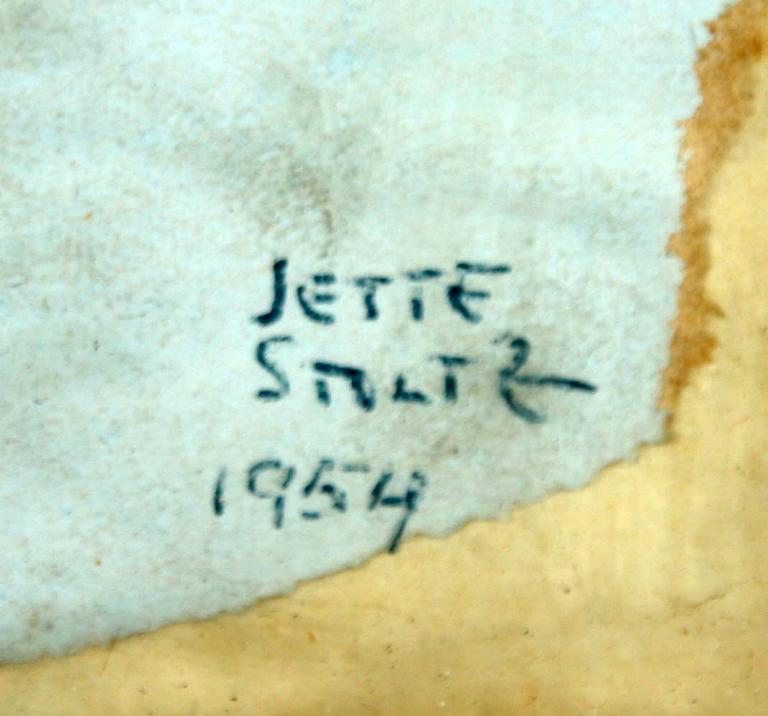 JETTE
STOLTZ
1954